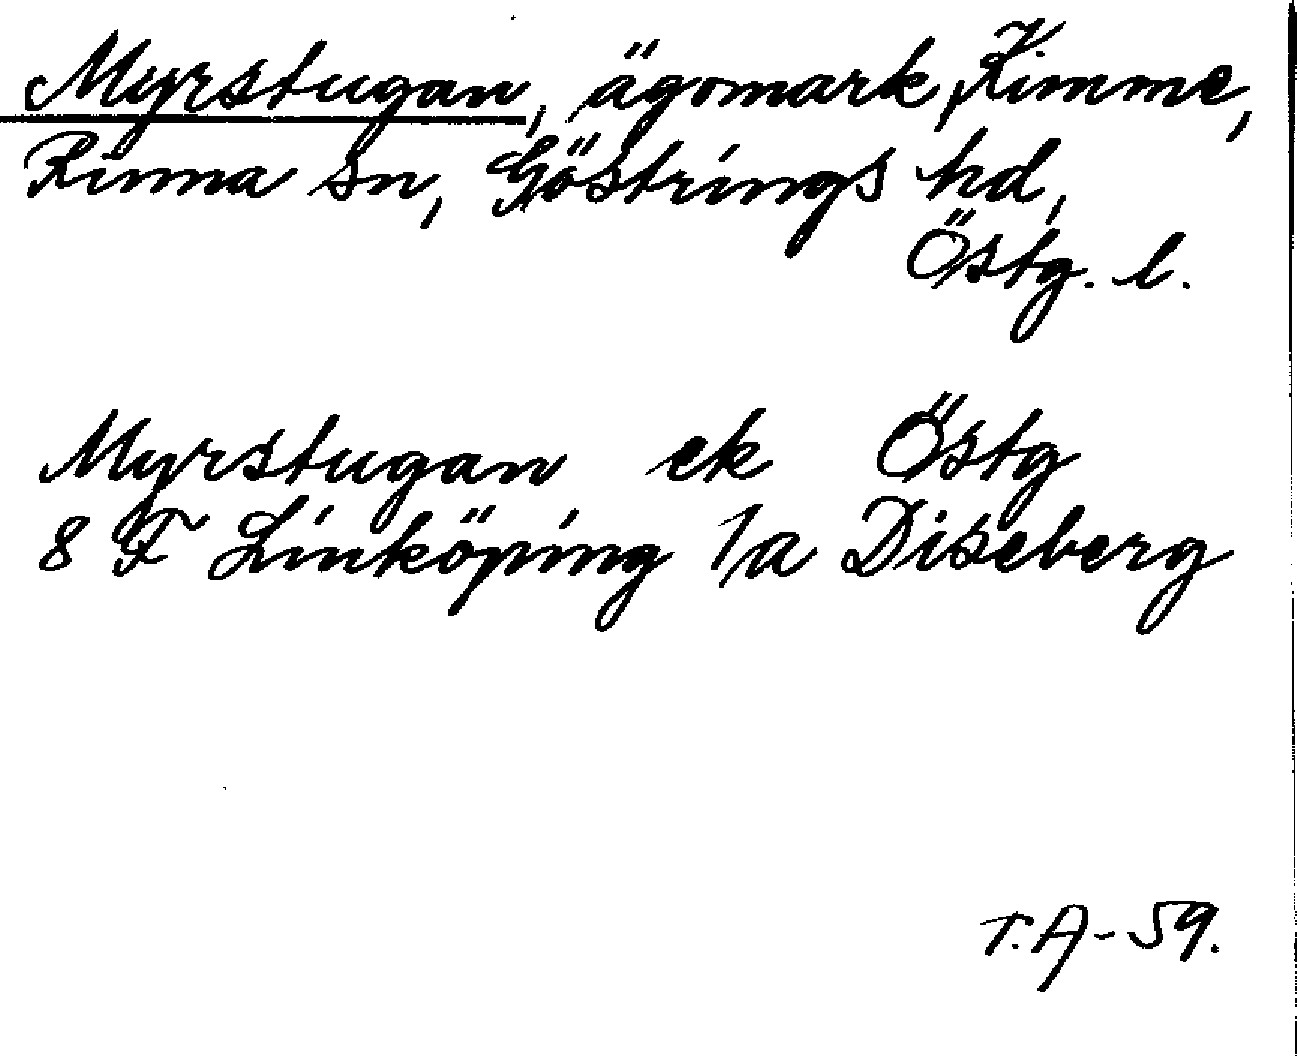 Myrstugan, ägomark, Kimme,
Rinna sn, Göstrings hd,
Östg. l.
Myrstugan ek Östg
8 F Linköping 1a Diseberg
T.A-59.